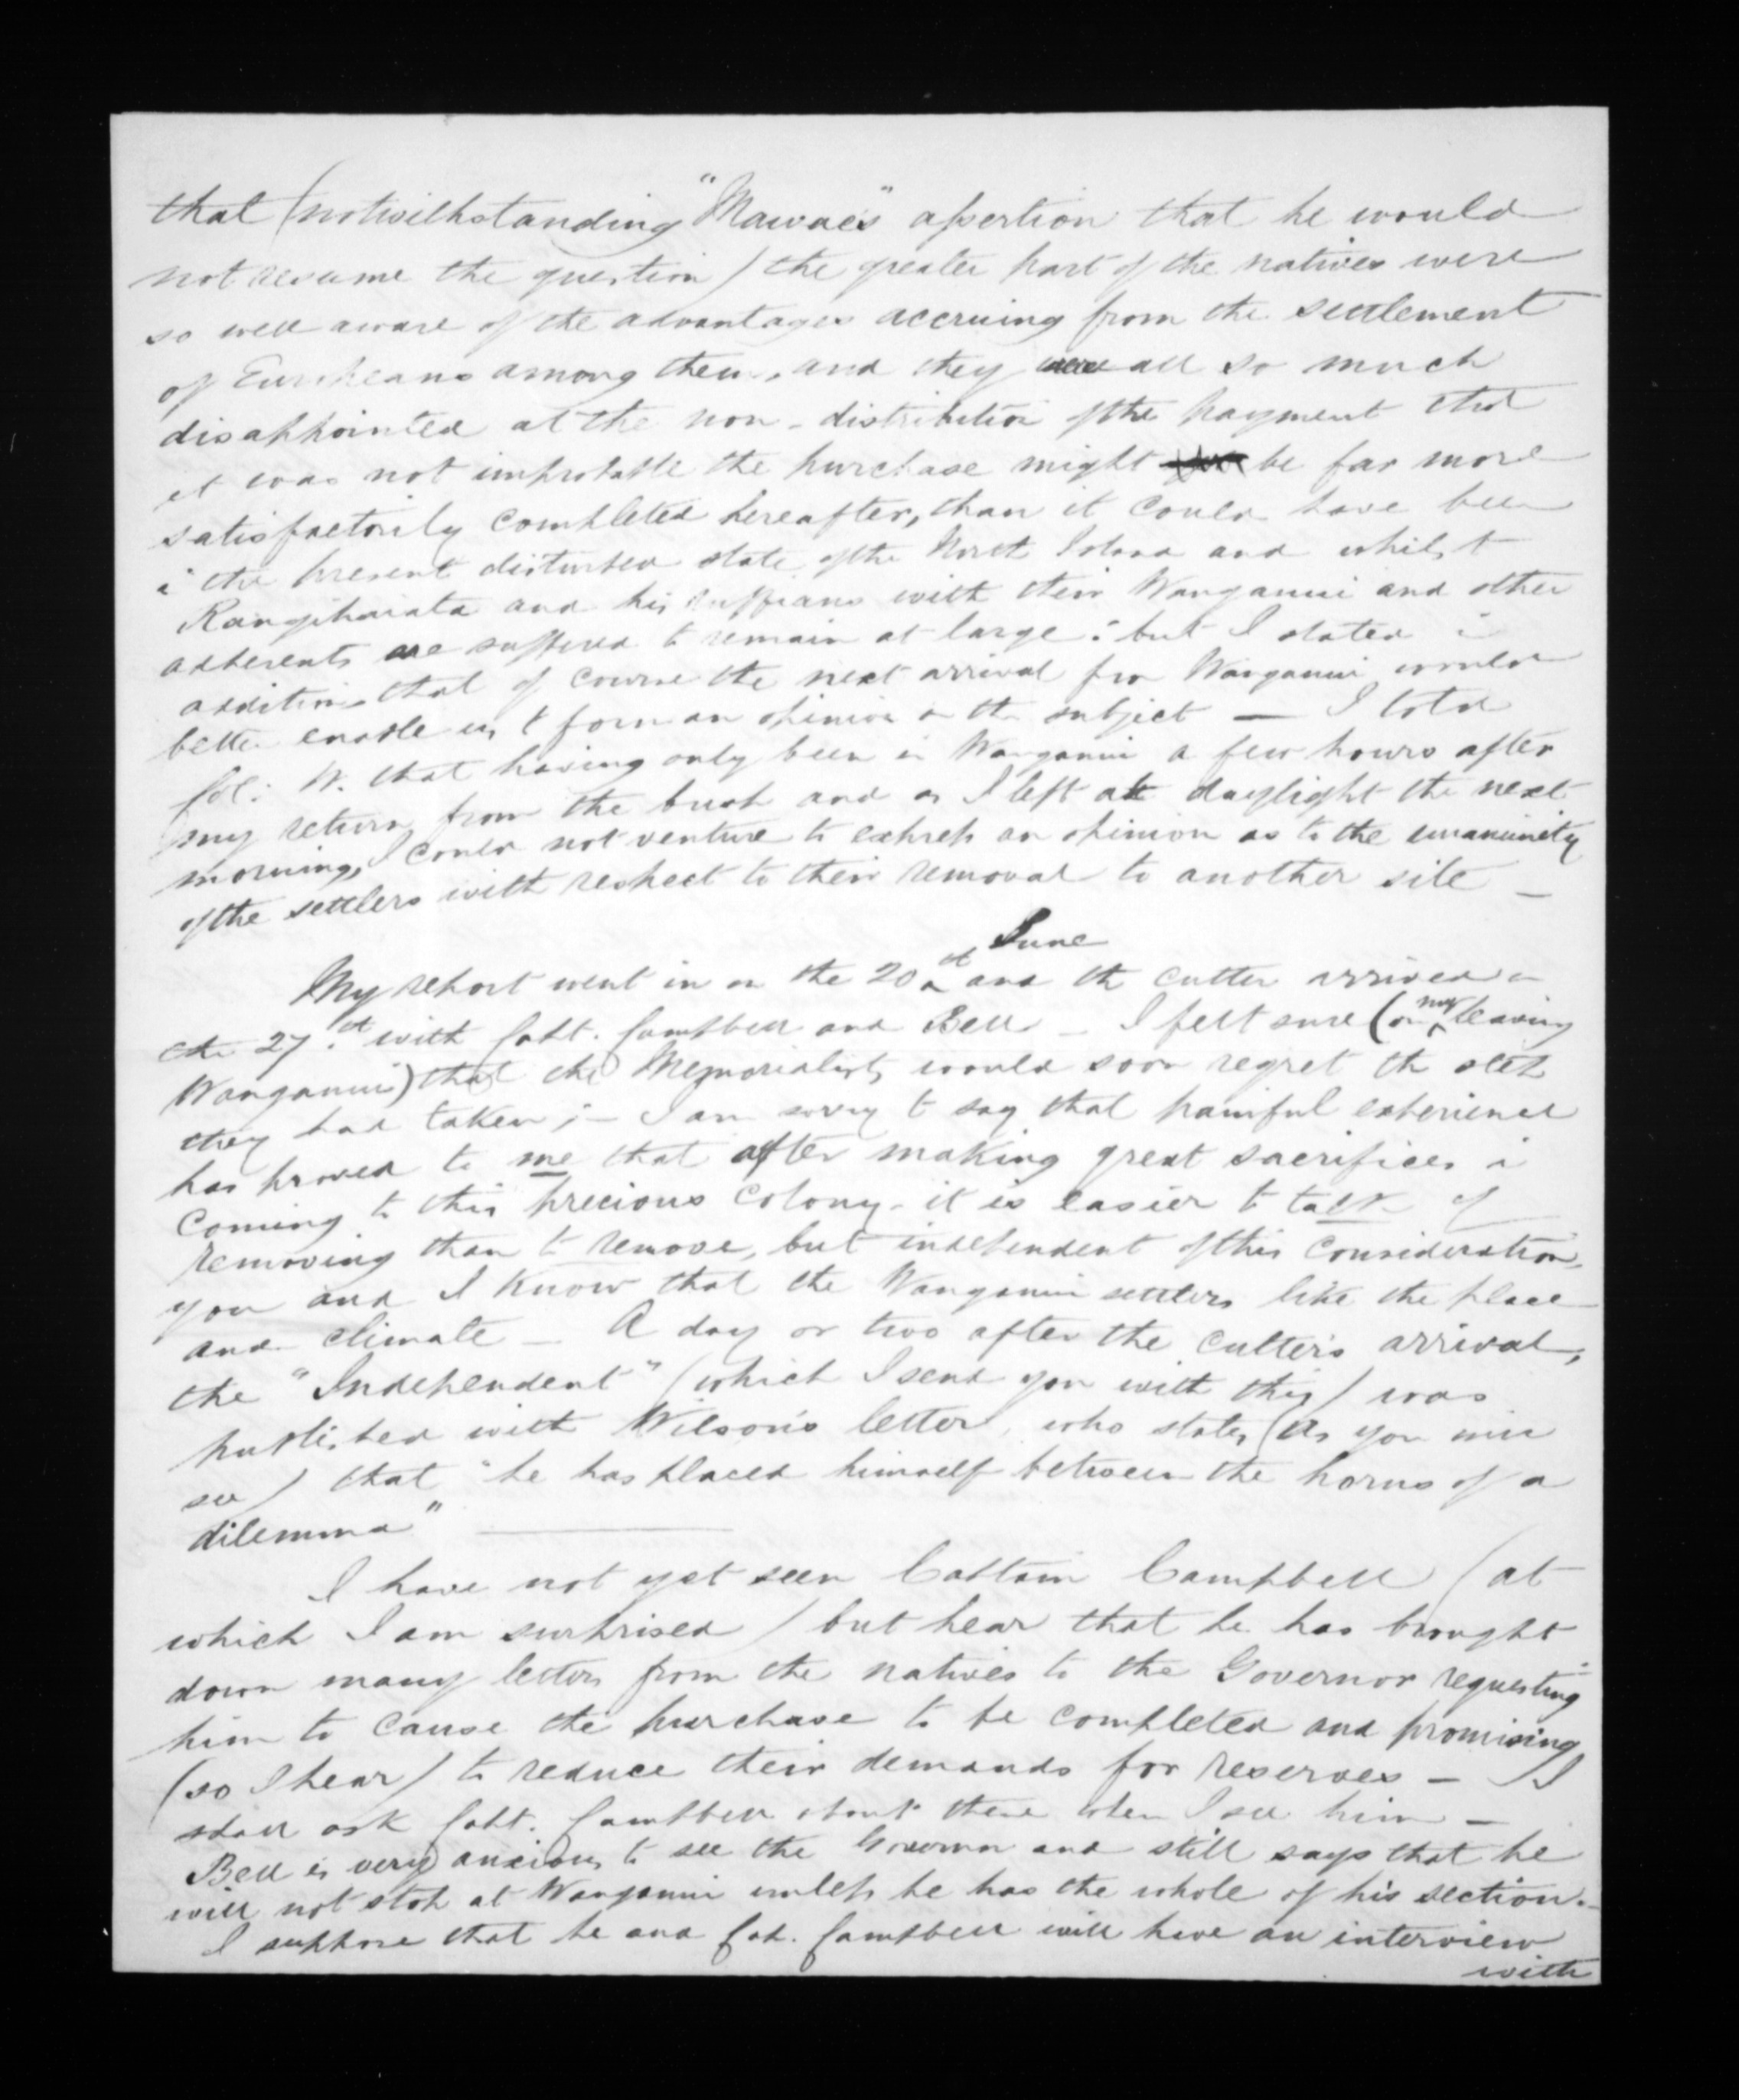 that (notwithstanding "Mawae's" assertion that he would
not resume the question) the greater part of the natives were
so well aware of the advantages accruing from the settlement
of Europeans among them, and they were all so much
disappointed at the non-distribution of the payment that
it was not improbable the purchase might be far more
satisfactorily completed hereafter, than it could have been
i the present disturbed state of the North Island and whilst
Rangihaiata and his ruffians with their Wanganui and other
adherents are suffered to remain at large: but I stated i
addition that of course the next arrival fro Wanganui would
better enable us t form an opinion on the subject — I told
Col: W. that having only been in Wanganui a few hours after
my return from the bush and as I left at daylight the next
morning, I could not venture to express an opinion as to the unanimity
of the settlers with respect to their removal to another site —
My report went in on the 20th June and the cutter arrived on
the 27th. with Capt. Campbell and Bell — I felt sure (on my leaving
Wanganui) that the Memorialists would soon regret the step
they had taken; — I am sorry to say that painful experience
has proved to me that after making great sacrifices i
coming to this precious colony - it is easier to talk of
removing than to remove, but independent of this consideration,
you and I know that the Wanganui settlers like the place
and climate — A day or two after the cutter's arrival,
the "Independent" (which I send you with this) was
published with Wilson's letter, who states (as you will
see) that "he has placed himself between the horns of a
dilemma" —
I have not yet seen Captain Campbell (at
which I am surprised) but hear that he has brought
down many letters from the natives to the Governor requesting
him to cause the purchase to be completed and promising
(so I hear) to reduce their demands for reserves — I
shall ask Capt. Campbell about these when I see him —
Bell is very anxious to see the Governor and still says that he
will not stop at Wanganui unless he has the whole of his section. —
I suppose that he and Cap. Campbell will have an interview
with